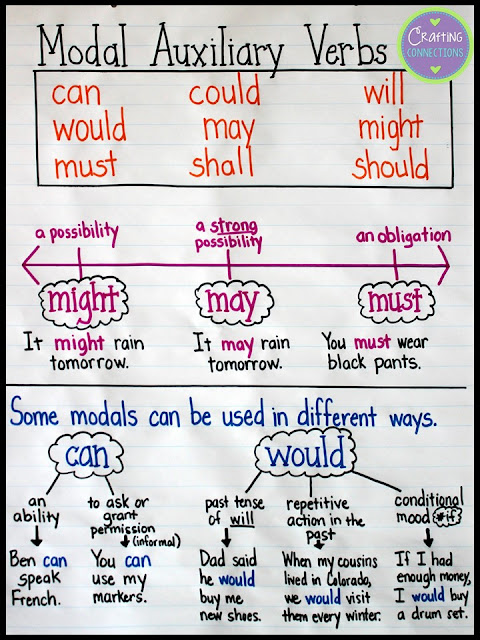 Modal Auxiliary Verbs
Crafting
CONNECTIONS
can could will
would may might
must shall should
a possibility
a strong
possibility
an obligation
might
may
must
It might rain
tomorrow.
It may rain
tomorrow.
You must wear
black pants.
Some modals can be used in different ways.
can
would
an
ability
to ask or
grant
permission
(informal)
past tense
of will
repetitive
action in the
past
conditional
mood #if
Ben can
speak
French.
You can
use my
markers.
Dad said
he would
buy me
new shoes.
When my cousins
lived in Colorado,
we would visit
them every winter.
If I had
enough money,
I would buy
a drum set.